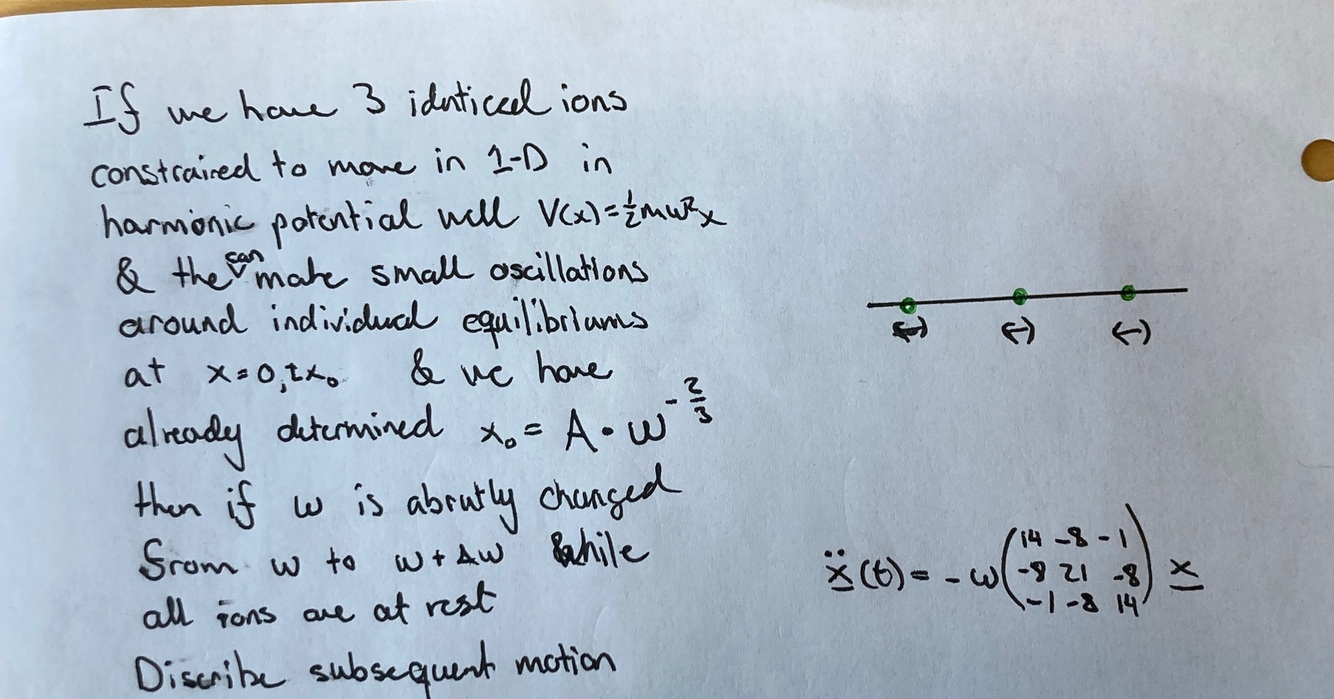 If we have 3 identicel ions
constrained to move in 1-D in
harmonic potential well V(x)=½mω²x
& the can make small oscillations
around individual equilibriums
at x=0,±x₀ & we have
already determined x₀ = A·ω^{-2/3}
then if ω is abrutly changed
from ω to ω+Δω while
all ions are at rest
Discribe subsequent motion
(-) (-) (-)
ẍ(t) = -ω (14 -8 -1
-8 21 -8
-1 -8 14) x